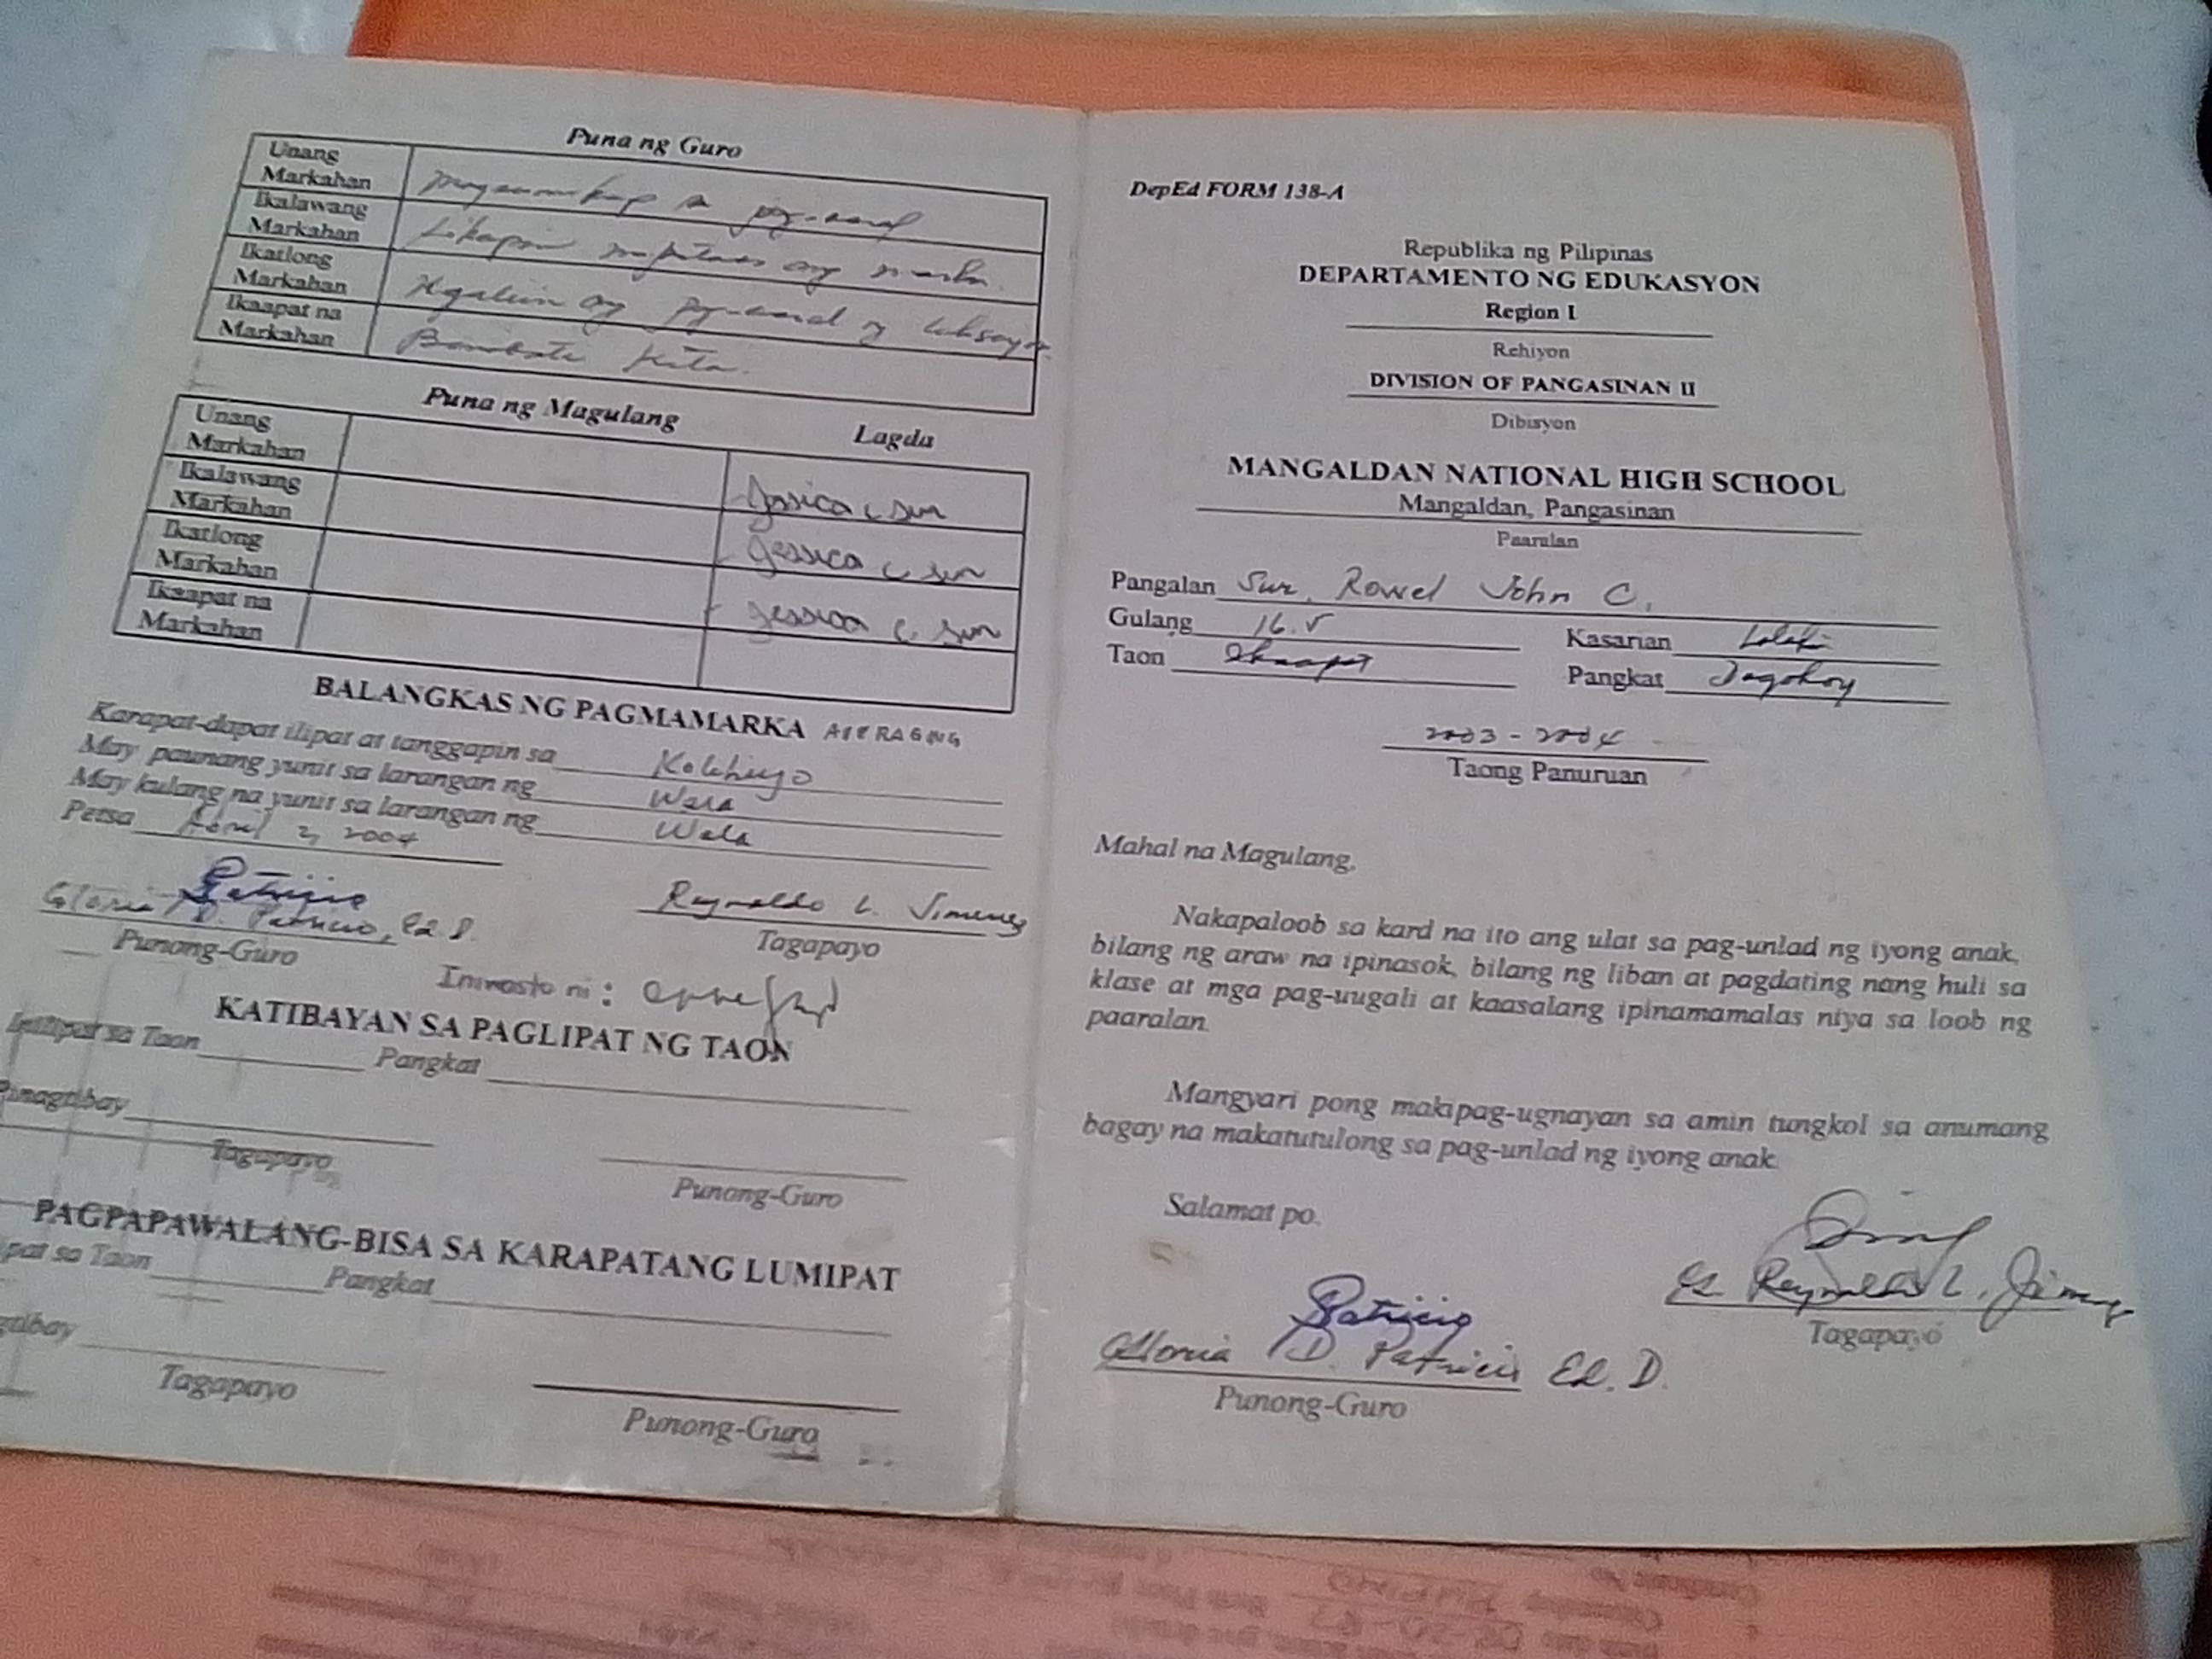 Puna ng Guro
Unang Markahan
Magsumikap sa pag-aaral
Ikalawang Markahan
Sikaping mapataas ang marka.
Ikatlong Markahan
ang pag-aaral ng leksyon
Ikaapat na Markahan
Binabati kita.
Puna ng Magulang
Lagda
Unang Markahan
Jessica C Sur
Ikalawang Markahan
Jessica C Sur
Ikatlong Markahan
Jessica C Sur
Ikaapat na Markahan
BALANGKAS NG PAGMAMARKA AVERAGING
Karapat-dapat ilipat at tanggapin sa Kolehiyo
May paunang yunit sa larangan ng Wala
May kulang na yunit sa larangan ng Wala
Petsa April 2, 2004
Gloria D. Patricio, Ed.D.
Reynaldo L. Jimenez
Punong-Guro
Tagapayo
Iniwasto ni:
KATIBAYAN SA PAGLIPAT NG TAON
Ililipat sa Taon Pangkat
Pinagtibay
Tagapayo
Punong-Guro
PAGPAPAWALANG-BISA SA KARAPATANG LUMIPAT
pat sa Taon Pangkat
gtibay
Tagapayo
Punong-Guro
DepEd FORM 138-A
Republika ng Pilipinas
DEPARTAMENTO NG EDUKASYON
Region I
Rehiyon
DIVISION OF PANGASINAN II
Dibisyon
MANGALDAN NATIONAL HIGH SCHOOL
Mangaldan, Pangasinan
Paaralan
Pangalan Sur, Rowel John C.
Gulang 16.5 Kasarian Lalaki
Taon Ikaapat Pangkat Dagohoy
2003 - 2004
Taong Panuruan
Mahal na Magulang,
Nakapaloob sa kard na ito ang ulat sa pag-unlad ng iyong anak,
bilang ng araw na ipinasok, bilang ng liban at pagdating nang huli sa
klase at mga pag-uugali at kaasalang ipinamamalas niya sa loob ng
paaralan.
Mangyari pong makipag-ugnayan sa amin tungkol sa anumang
bagay na makatutulong sa pag-unlad ng iyong anak.
Salamat po.
Reynaldo L. Jimenez
Tagapayo
Patricio
Gloria D. Patricio Ed. D.
Punong-Guro